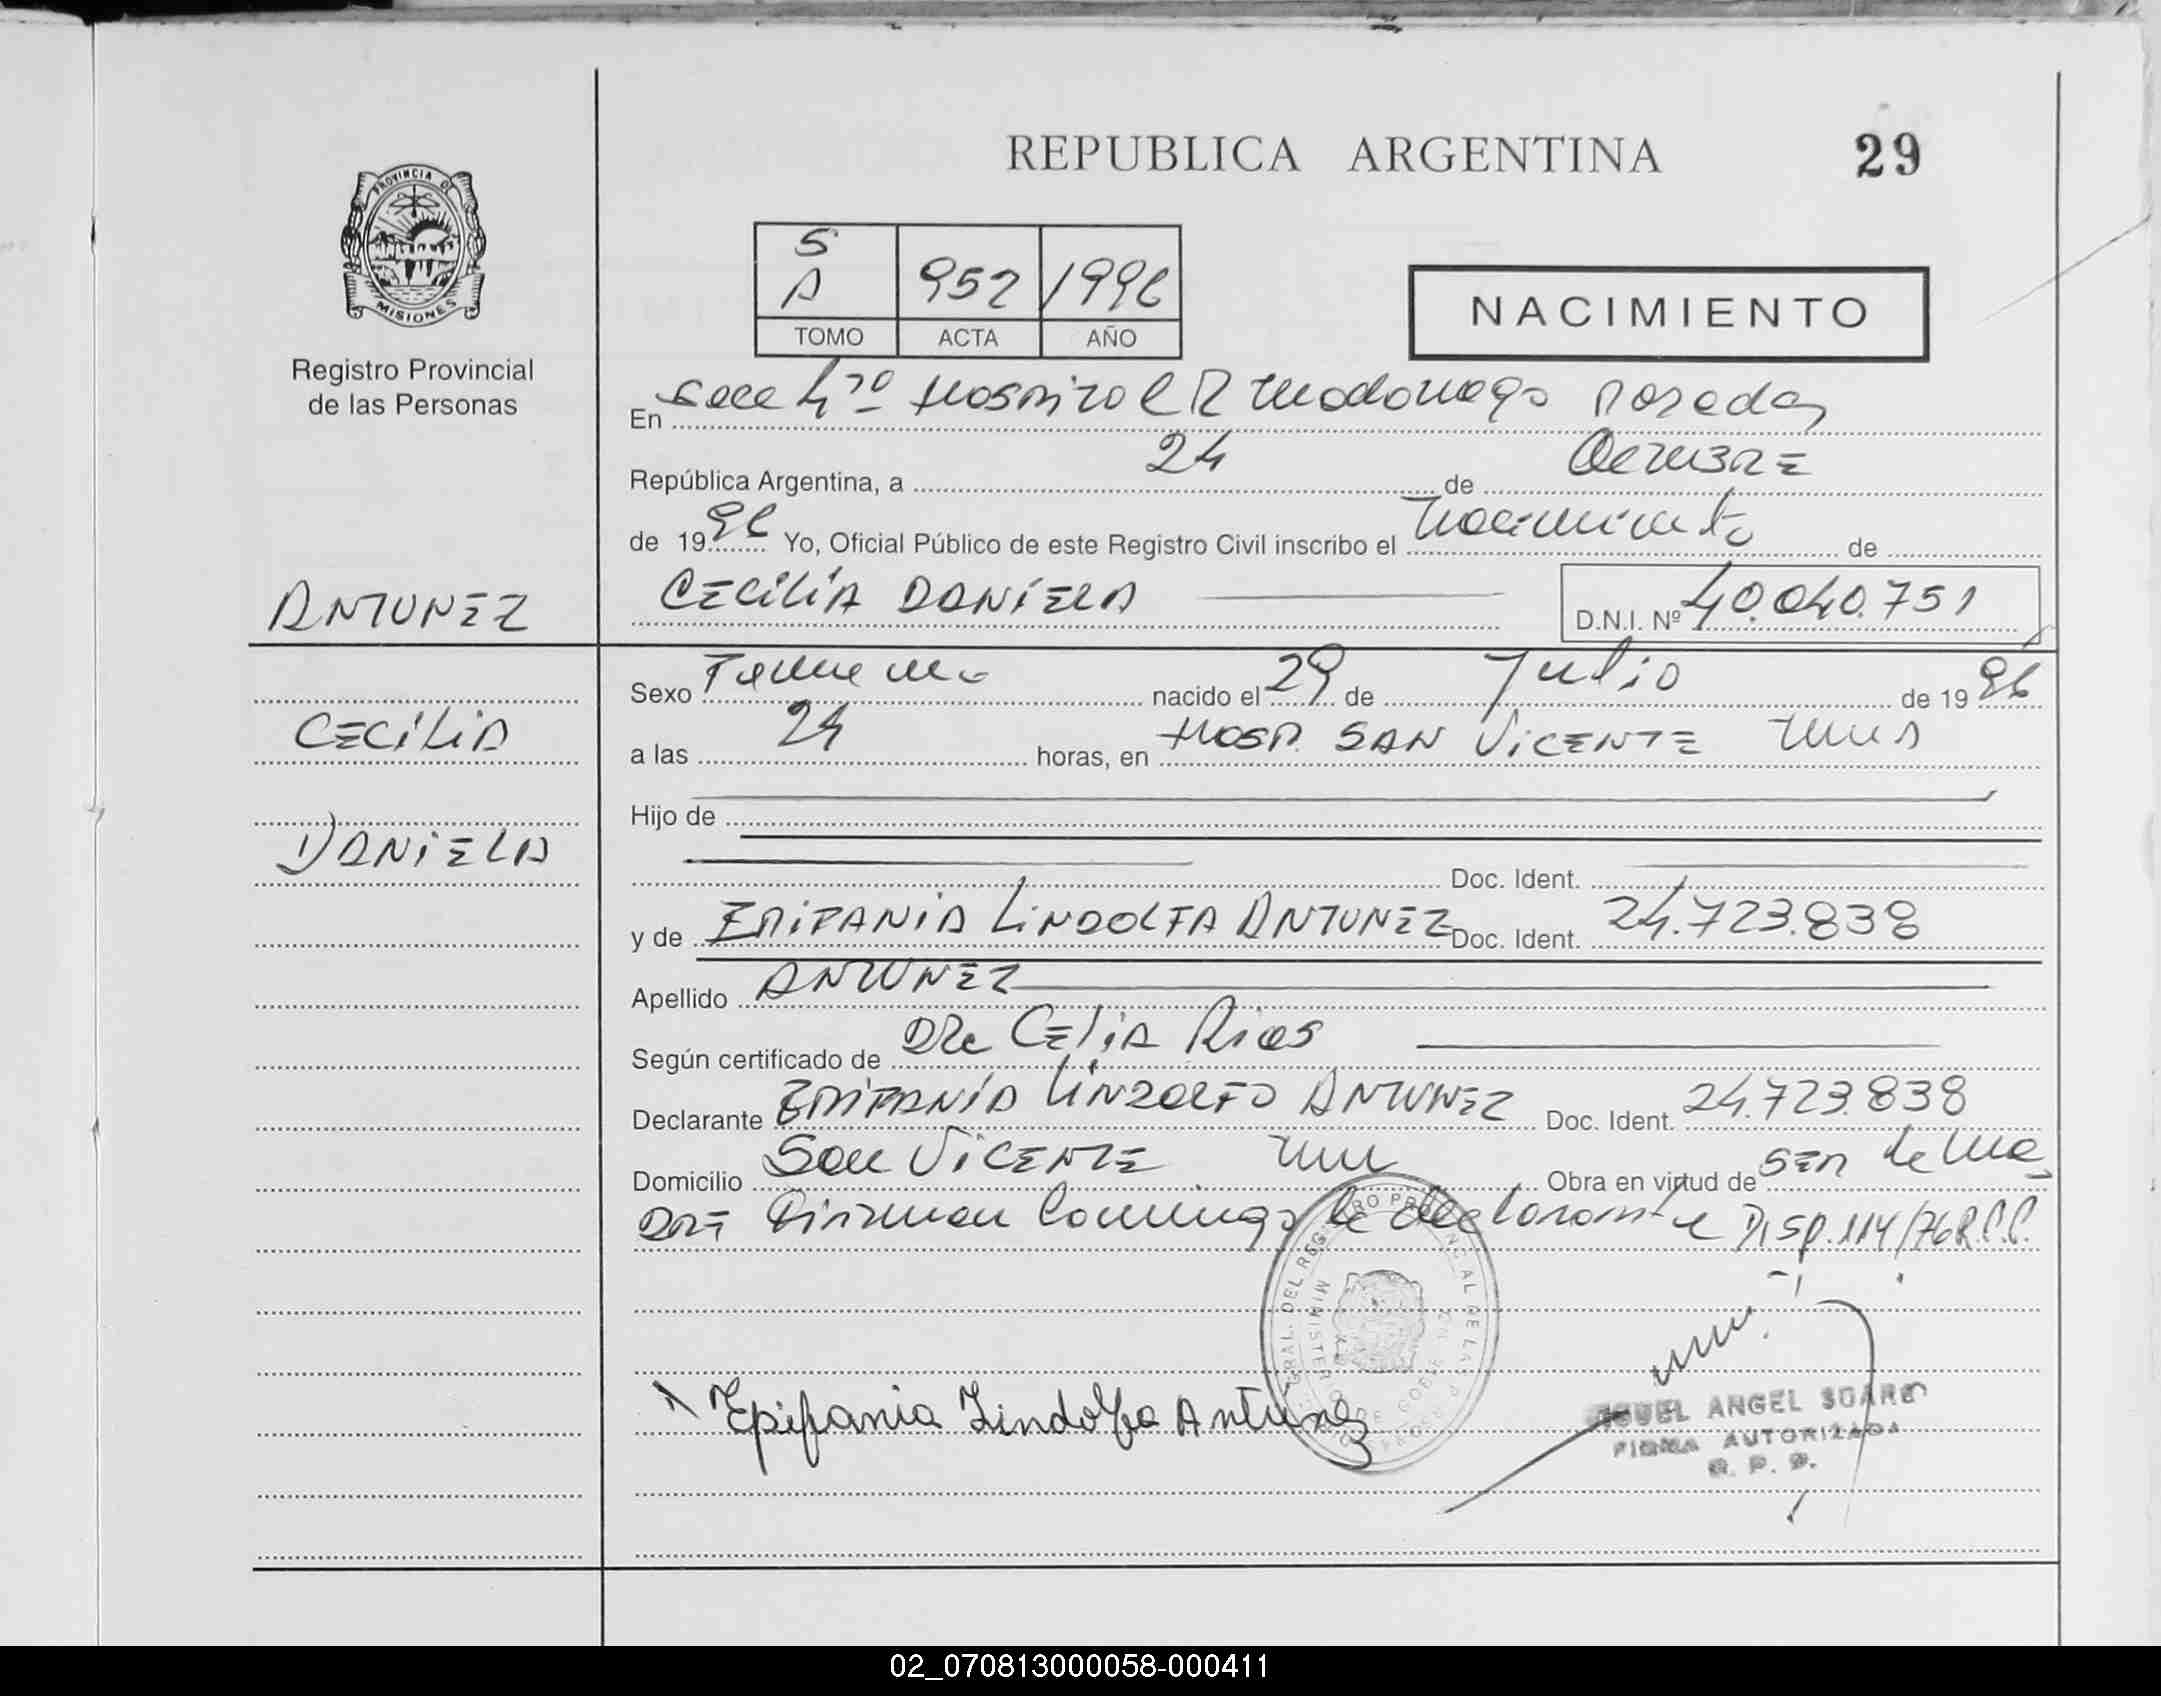 REPUBLICA ARGENTINA 29
PROVINCIA DE
MISIONES
Registro Provincial
de las Personas
S
A 952 1996
TOMO ACTA AÑO
NACIMIENTO
En Secc 4ta Hospital R Madariaga Posadas
República Argentina, a 24 de Octubre
de 1996 Yo, Oficial Público de este Registro Civil inscribo el nacimiento de
ANTUNEZ
CECILIA DANIELA D.N.I. Nº 40.040.751
Sexo Femenino nacido el 29 de Julio de 1996
CECILIA
a las 24 horas, en HOSP. SAN VICENTE Mnes
Hijo de
DANIELA
Doc. Ident.
y de EPIFANIA LINDOLFA ANTUNEZ Doc. Ident. 24.723.838
Apellido ANTUNEZ
Según certificado de Dra CELIA Rios
Declarante EPIFANIA LINDOLFA ANTUNEZ Doc. Ident. 24.723.838
Domicilio San VICENTE Obra en virtud de ser la ma
dre Firman Conmigo la declarante Disp. 114/76 R.P.P.
Epifania Lindolfa Antunez
MIGUEL ANGEL SUAREZ
FIRMA AUTORIZADA
R. P. P.
02_070813000058-000411